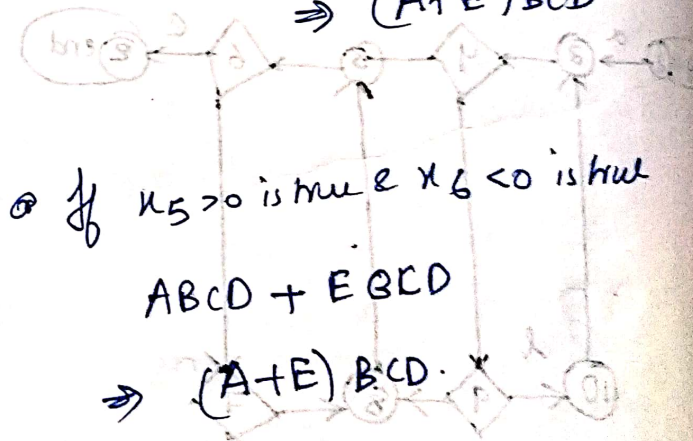 ⇒ (A+E)BCD
If x5>0 is true & x6 <0 is true
ABCD + EBCD
⇒ (A+E) BCD.